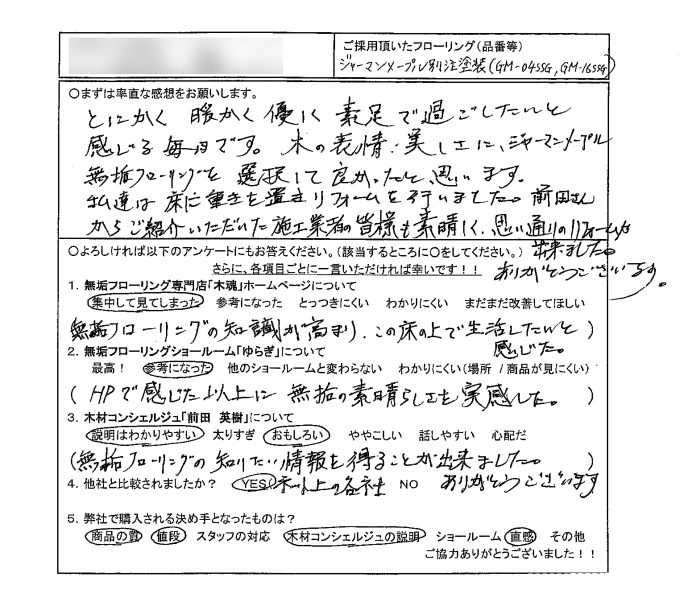 ご採用頂いたフローリング(品番等)
ジャーマンメープル別注塗装(GM-04SSG, GM-16SSG)
○まずは率直な感想をお願いします。
とにかく 暖かく 優しく 素足で過ごしたいと
感じる毎日です。木の表情、美しさに、ジャーマンメープル
無垢フローリングを 選択して良かったと思います。
私達は床に重きを置きリフォームを行いました。前田さん
からご紹介いただいた施工業者の皆様も素晴しく、思い通りのリフォームが
出来ました。
ありがとうございます。
○よろしければ以下のアンケートにもお答えください。(該当するところに○をしてください。)
さらに、各項目ごとに一言いただければ幸いです!!
1. 無垢フローリング専門店「木魂」ホームページについて
集中して見てしまった 参考になった とっつきにくい わかりにくい まだまだ改善してほしい
(無垢フローリングの知識が高まり、この床の上で生活したいと
感じた。)
2. 無垢フローリングショールーム「ゆらぎ」について
最高! 参考になった 他のショールームと変わらない わかりにくい(場所/商品が見にくい)
(HPで感じた以上に 無垢の素晴らしさを実感した。)
3. 木材コンシェルジュ「前田 英樹」について
説明はわかりやすい 太りすぎ おもしろい ややこしい 話しやすい 心配だ
(無垢フローリングの知りたい情報を得ることが出来ました。)
ありがとうございます
4. 他社と比較されましたか? YES ネット上の各社 NO
5. 弊社で購入される決め手となったものは?
商品の質 値段 スタッフの対応 木材コンシェルジュの説明 ショールーム 直感 その他
ご協力ありがとうございました!!